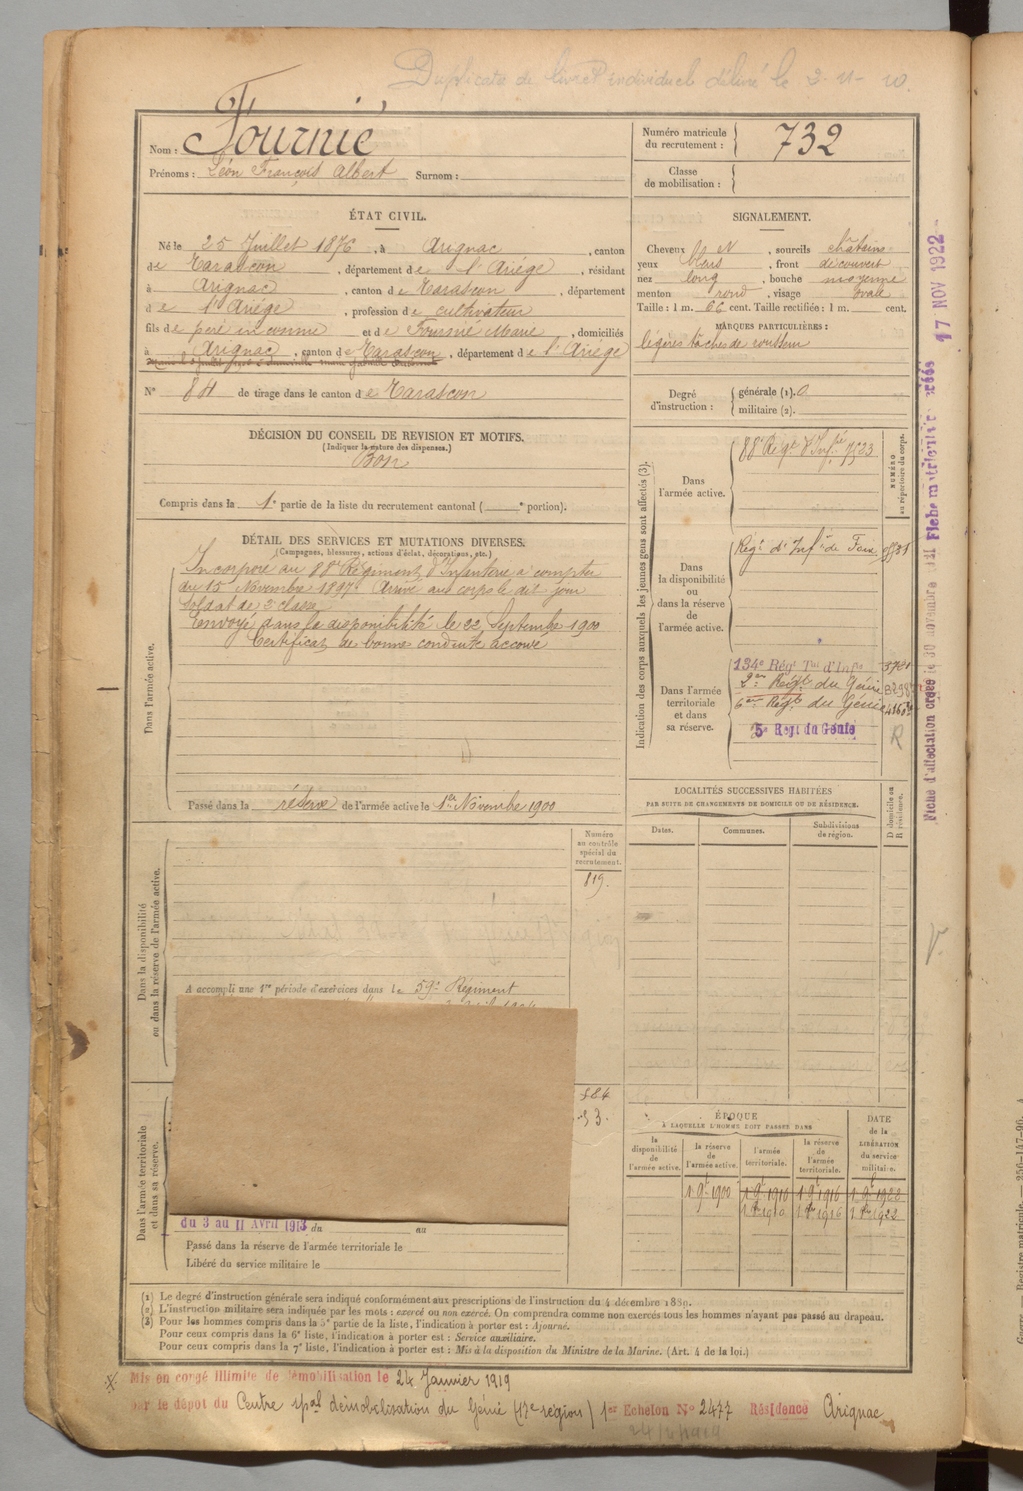 Duplicata de livret individuel délivré le 2-11-10.
Nom : Fournié
Prénoms : Léon François Albert Surnom :
Numéro matricule du recrutement : 732
Classe de mobilisation :
ÉTAT CIVIL.
Né le 25 Juillet 1876, à Arignac, canton
de Tarascon, département de l'Ariége, résidant
à Arignac, canton de Tarascon, département
de l'Ariége, profession de cultivateur
fils de père inconnu et de Fournié Marie, domiciliés
à Arignac, canton de Tarascon, département de l'Ariége
N° 84 de tirage dans le canton de Tarascon
SIGNALEMENT.
Cheveux et, sourcils châtains
yeux bleus, front découvert
nez long, bouche moyenne
menton rond, visage ovale
Taille : 1 m. 66 cent. Taille rectifiée : 1 m. cent.
MARQUES PARTICULIÈRES :
légères tâches de rousseur
Degré d'instruction : générale (1). 0
militaire (2).
DÉCISION DU CONSEIL DE REVISION ET MOTIFS.
(Indiquer la nature des dispenses.)
Bon
Compris dans la 1e partie de la liste du recrutement cantonal ( e portion).
DÉTAIL DES SERVICES ET MUTATIONS DIVERSES.
(Campagnes, blessures, actions d'éclat, décorations, etc.)
Dans l'armée active.
Incorporé au 88e Régiment d'Infanterie à compter
du 15 Novembre 1897. Arrivé au corps le dit jour
Soldat de 2e classe
Envoyé dans la disponibilité le 22 Septembre 1900
Certificat de bonne conduite accordé
Passé dans la réserve de l'armée active le 1er Novembre 1900
Indication des corps auxquels les jeunes gens sont affectés (3).
NUMÉRO au répertoire du corps.
Dans l'armée active.
88e Régt d'Infie 7523
Dans la disponibilité ou dans la réserve de l'armée active.
Régt d'Infie de Foix
Dans l'armée territoriale et dans sa réserve.
134e Régt Tal d'Infie
2me Régt du Génie
6me Régt du Génie
5e Régt du Génie
R
LOCALITÉS SUCCESSIVES HABITÉES
PAR SUITE DE CHANGEMENTS DE DOMICILE OU DE RÉSIDENCE.
Dates. Communes. Subdivisions de région. D domicile ou R résidence.
Dans la disponibilité ou dans la réserve de l'armée active.
Numéro au contrôle spécial du recrutement.
819.
A accompli une 1re période d'exercices dans le 59e Régiment
Dans l'armée territoriale et dans sa réserve.
du 3 au 11 Avril 1913 du au
Passé dans la réserve de l'armée territoriale le
Libéré du service militaire le
ÉPOQUE
À LAQUELLE L'HOMME DOIT PASSER DANS
la disponibilité de l'armée active.
la réserve de l'armée active.
l'armée territoriale.
la réserve de l'armée territoriale.
DATE de la LIBÉRATION du service militaire.
1 9e 1900 1 9e 1910 1 9e 1916 1 9e 1922
(1) Le degré d'instruction générale sera indiqué conformément aux prescriptions de l'instruction du 4 décembre 1889.
(2) L'instruction militaire sera indiquée par les mots : exercé ou non exercé. On comprendra comme non exercés tous les hommes n'ayant pas passé au drapeau.
(3) Pour les hommes compris dans la 5e partie de la liste, l'indication à porter est : Ajourné.
Pour ceux compris dans la 6e liste, l'indication à porter est : Service auxiliaire.
Pour ceux compris dans la 7e liste, l'indication à porter est : Mis à la disposition du Ministre de la Marine. (Art. 4 de la loi.)
Mis en congé illimité de démobilisation le 24 Janvier 1919
par le dépôt du Centre spal démobilisation du Génie (17e région) 1er Echelon N° 2477 Résidence Arignac
Fiche matricule créés 17 NOV 1922